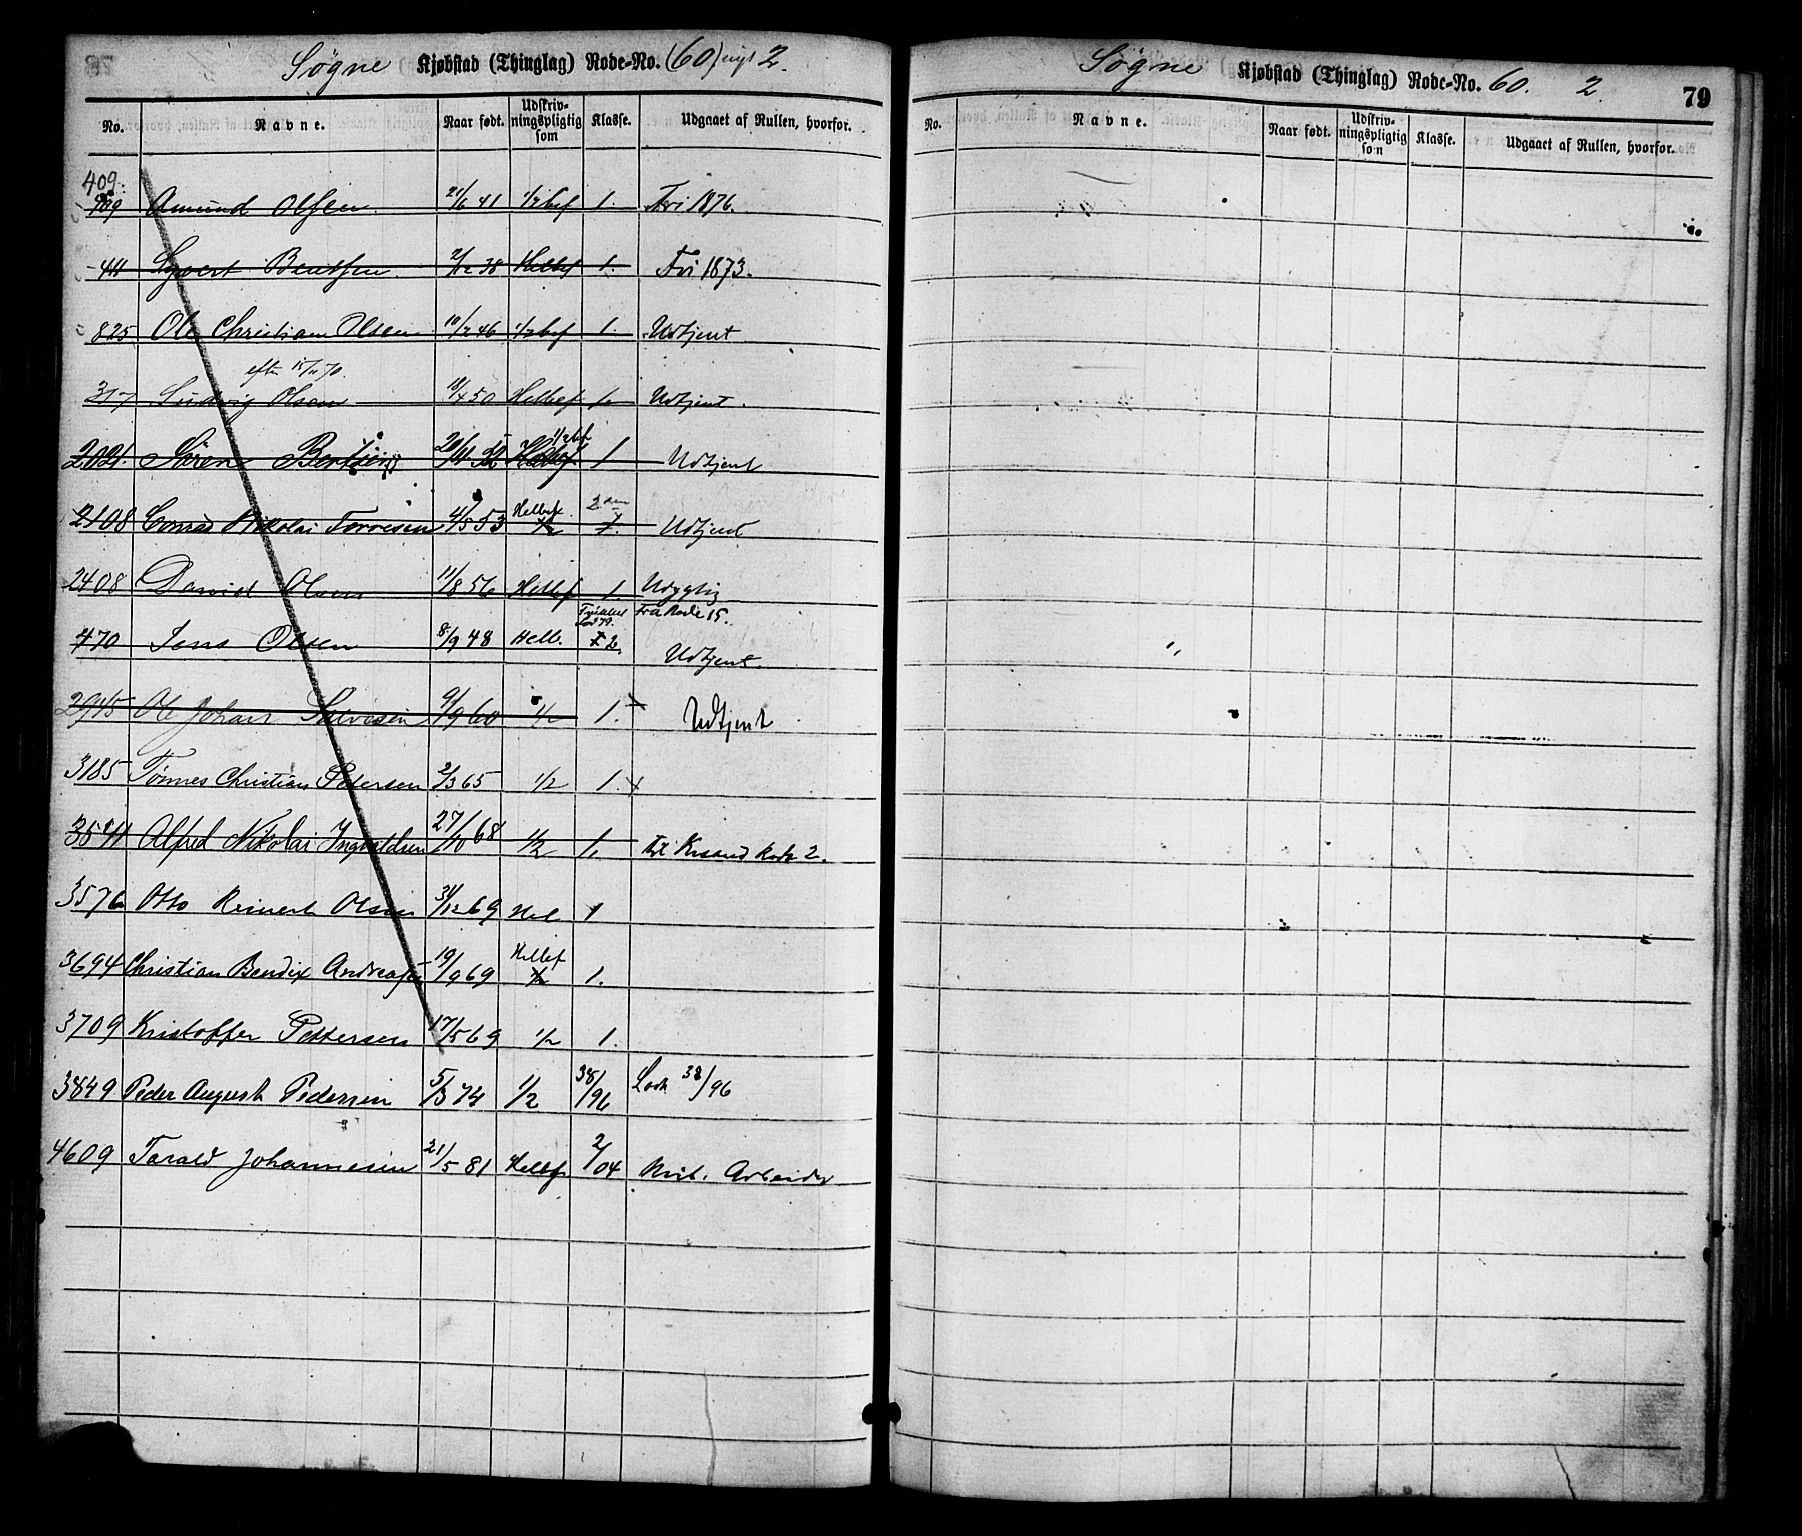 Søgne Kjøbstad (Thinglag) Rode-No. (60) nyt 2.
No. Navne. Naar født. Udskrivningspligtig som Klasse. Udgaaet af Rullen, hvorfor.
409.
409 Amund Olsen 21/6 41 1/2 bef 1. Fri 1876.
411 Syvert Bentsen. 2/12 38 Helbef 1. Fri 1873.
825 Ole Christian Olsen 10/2 46 1/2 bef 1. Udtjent
efter 15/11 70.
317 Ludvig Olsen 18/4 50 Helbef 1. Udtjent.
1/2 bef
2021. Søren Bentsen Helbef 1 Udtjent
Helbef. 2den
2108 Conrad Nikolai Torresen 4/5 53 1/2 1. Udtjent
2408 David Olsen 11/8 56 Helbef 1 Udygtig
Fra Rode 15.
470 Jens Olsen 8/9 48 Helb. 1 2. Udtjent.
2945 Ole Johan 9/9 60 1/2 1. Udtjent
3185 Tønnes Christian Petersen 2/3 65 1/2 1.
3541 Alfred Nikolai Ingvaldsen 27/10 68 1/2 1. til Krsand Rode 2.
3576 Otto Reinert Olsen 31/12 69 Hel 1
Helbef
3694 Christian Bendix Andreasen 19/9 69 1/2 1.
3709 Kristoffer Pettersen 17/5 69 1/2 1.
3849 Peder August Pedersen 5/3 74 1/2 38/96 Lods 38/96
4609 Tarald Johannesen 21/5 81 Helbf 2/04 Arbeider
Søgne Kjøbstad (Thinglag) Rode-No. 60. 2.
79
No. Navne. Naar født. Udskrivningspligtig som Klasse. Udgaaet af Rullen, hvorfor.